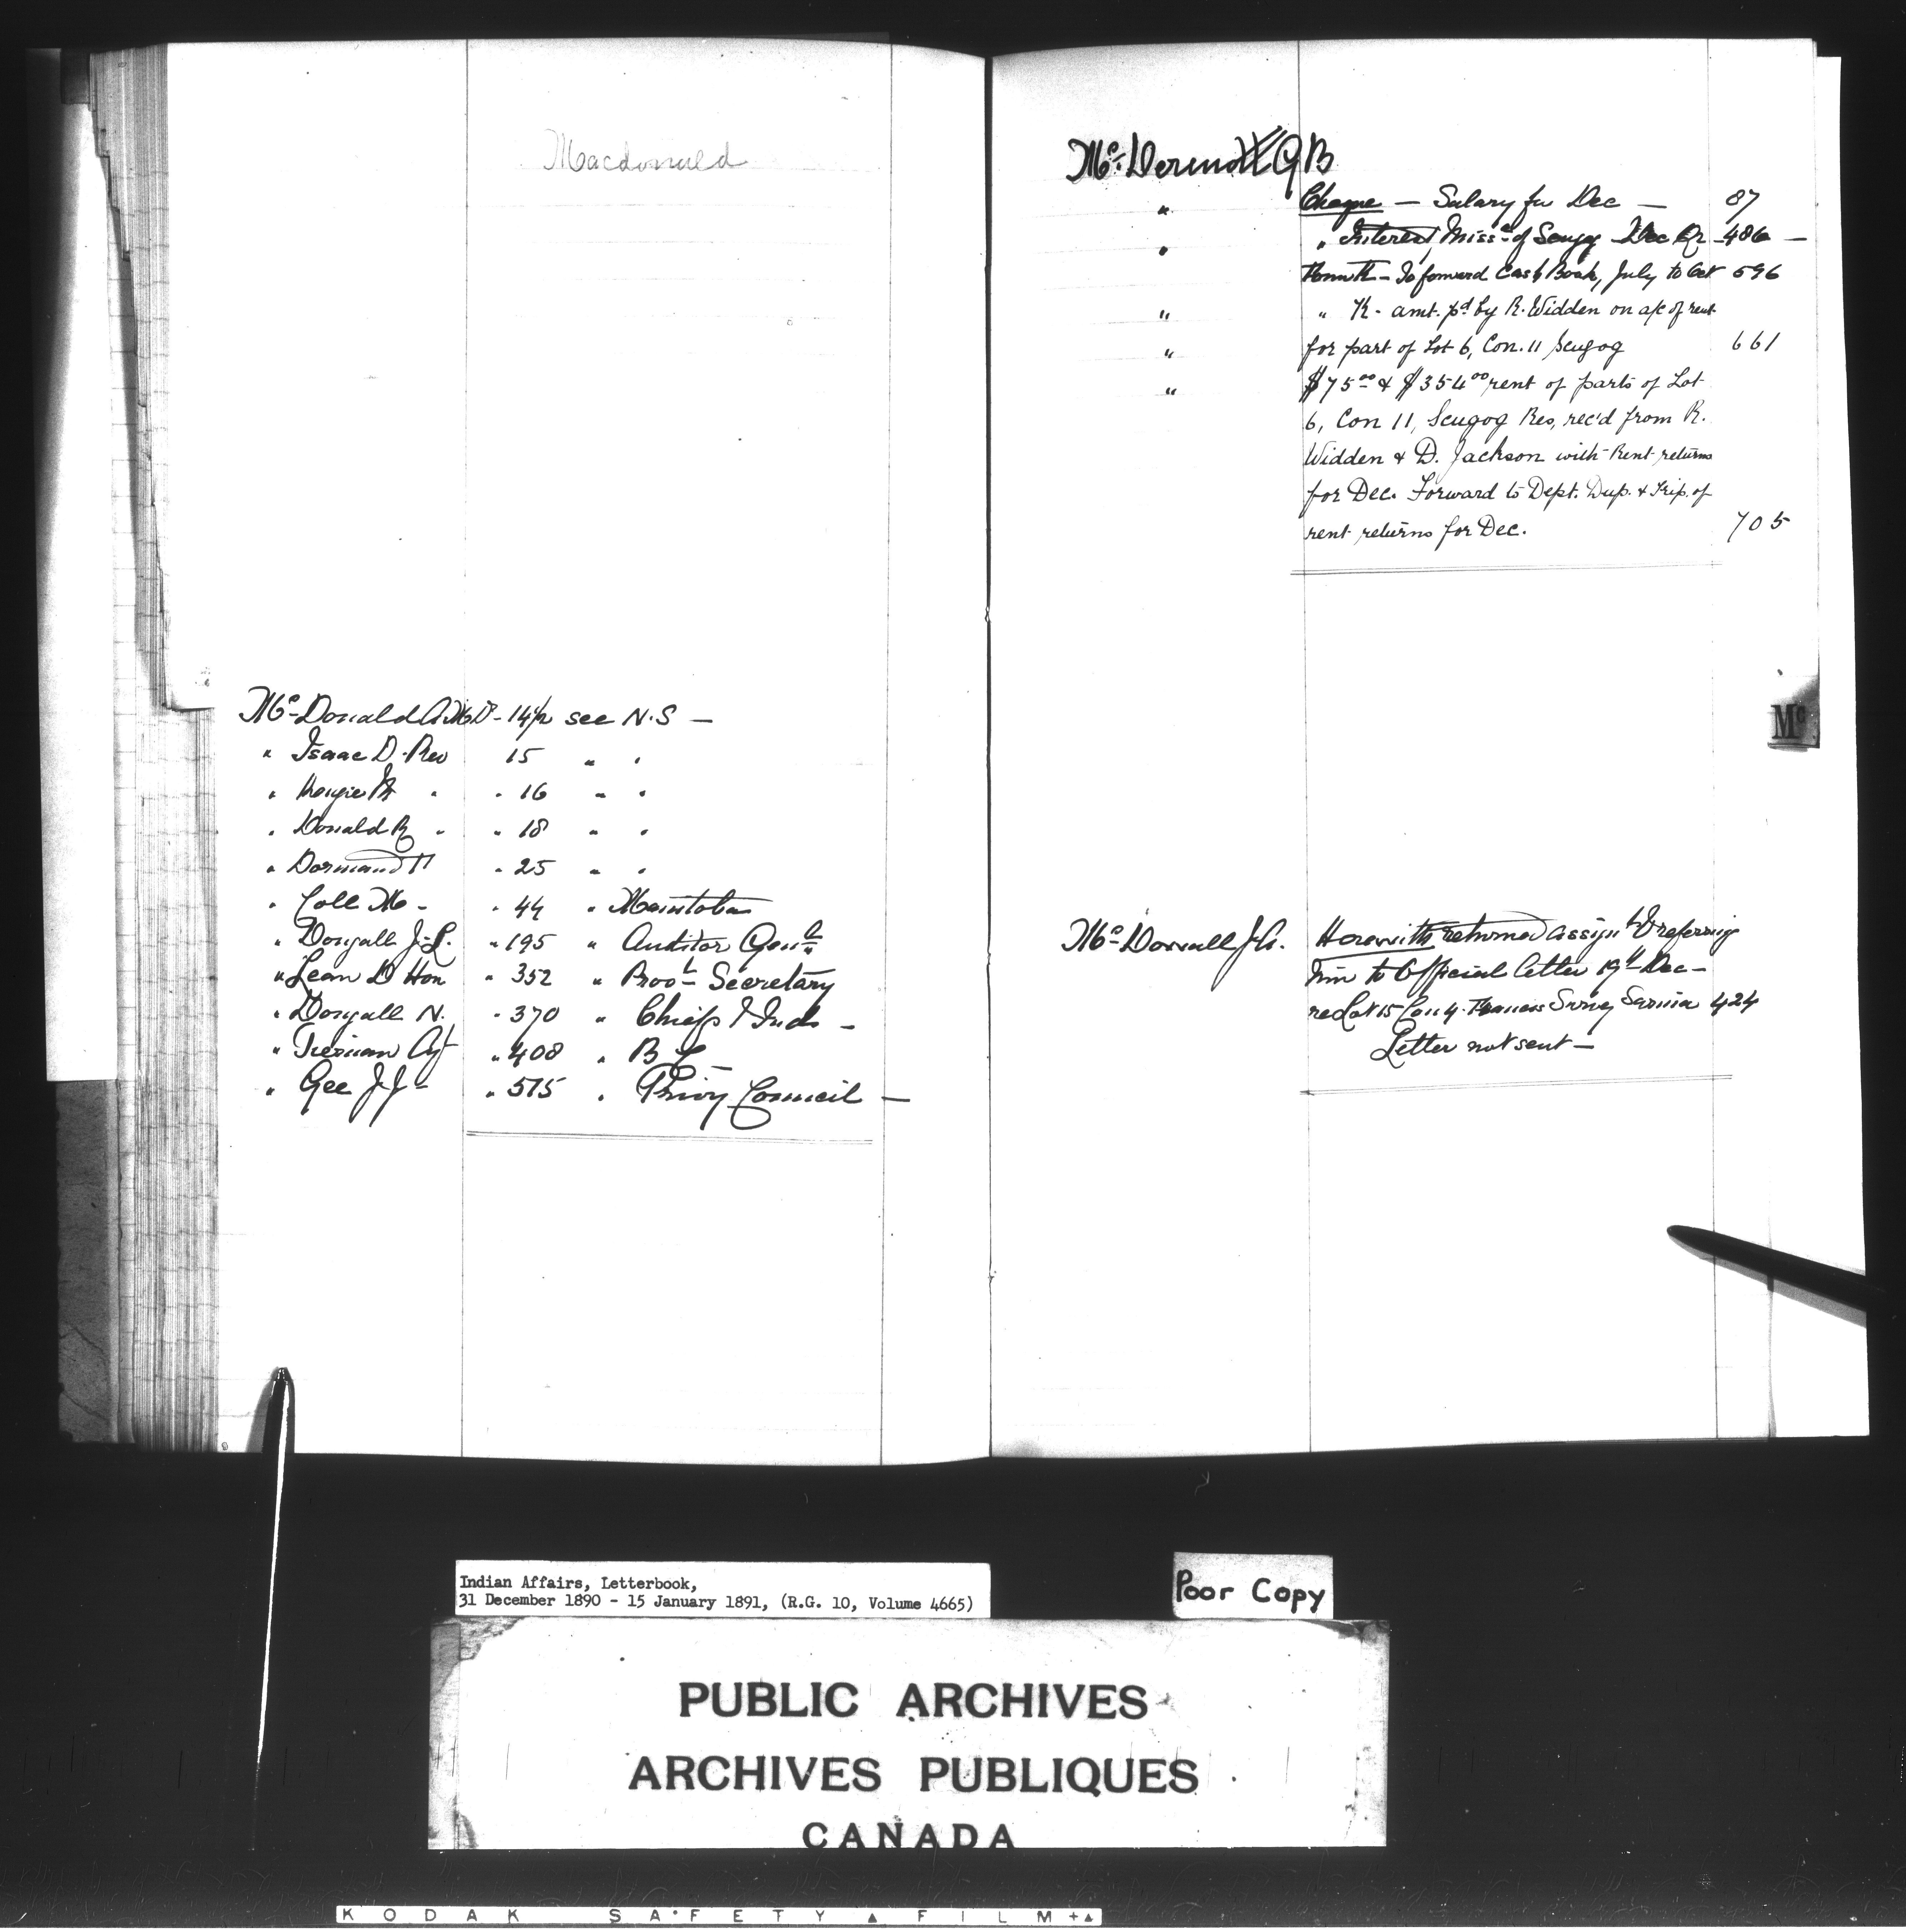 Macdonald
Mc Donald A MD - 14½ see N.S —
" Isaac D. Rev 15 " "
" " - 16 " "
" Donald R " " 18 " "
" Dormand " 25 " "
" Coll M - " 44 " Manitoba
" Dougall J. L. " 195 " Auditor Genl
" Lean D Hon " 352 " Provl Secretary
" Dougall N. " 370 " Chiefs & Inds —
" Tiernan Agt " 408 " B C
" Gee J J - " 575 " Privy Council —
Mc Dermott G B
" Cheque — Salary for Dec — 87
" " Interest Missn of Scugog Dec Qr — 486 —
To forward Cash Book, July to Oct 596
" " R. amt. pd by R. Widden on a/c of rent
" for part of Lot 6, Con. 11 Scugog 661
" $75.00 & $354.00 rent of parts of Lot
6, Con 11, Scugog Res, rec'd from R.
Widden & D. Jackson with Rent returns
for Dec. Forward to Dept. Dup. & Trip. of
rent returns for Dec. 705
Mc
Mc J. A. Herewith returned assignt & referring
him to Official letter 19th Dec —
re Lot 15 Con 4 Survey Sarnia 424
Letter not sent —
Indian Affairs, Letterbook,
31 December 1890 - 15 January 1891, (R.G. 10, Volume 4665)
Poor Copy
PUBLIC ARCHIVES
ARCHIVES PUBLIQUES
CANADA
KODAK SAFETY FILM